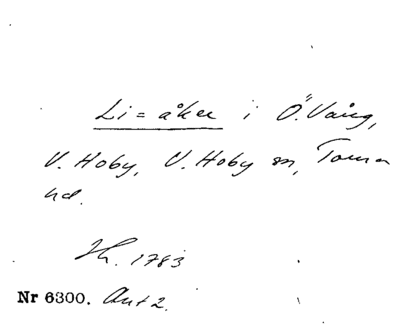 Li=åker i Ö. Vång,
V. Hoby, V. Hoby sn, Torna
hd.
Hh. 1783
Nr 6300. Ant 2.